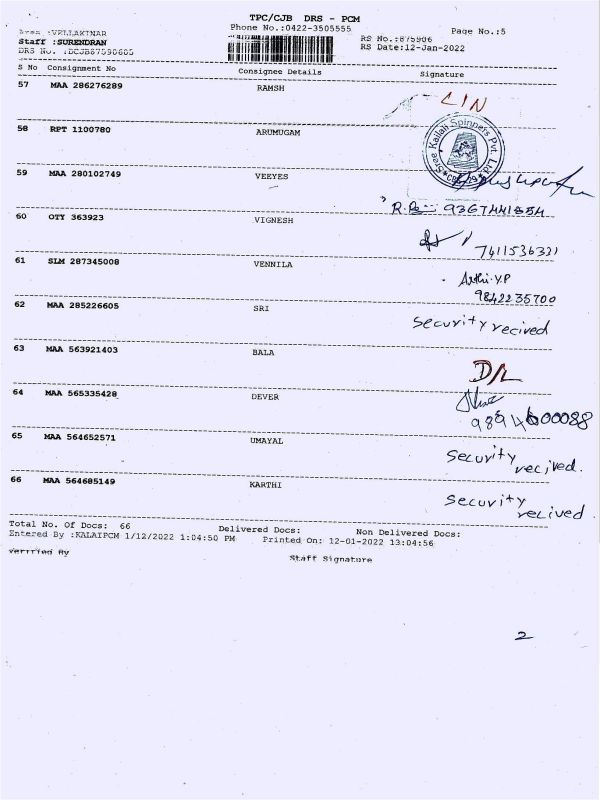 TPC/CJB DRS - PCM
Phone No.:0422-3505555 Page No.:5
Area :VELLAKINAR
RS No.:875906
Staff :SURENDRAN
RS Date:12-Jan-2022
DRS No. :DCJB87590605
S No Consignment No Consignee Details Signature
57 MAA 286276289 RAMSH LIN
58 RPT 1100780 ARUMUGAM
Sree Kailali Spinners Pvt. Ltd
59 MAA 280102749 VEEYES
60 OTY 363923 VIGNESH
7411536331
61 SLM 287345008 VENNILA Arthi.Y.P
9842235700
62 MAA 285226605 SRI Security recived
63 MAA 563921403 BALA D/L
64 MAA 565335428 DEVER
65 MAA 564652571 UMAYAL Security recived.
66 MAA 564685149 KARTHI Security recived.
Total No. Of Docs: 66 Delivered Docs: Non Delivered Docs:
Entered By :KALAIPCM 1/12/2022 1:04:50 PM Printed On: 12-01-2022 13:04:56
Verified By Staff Signature
2